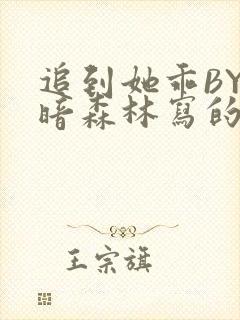 追到她乖BY
暗森林寫的
王宗旗